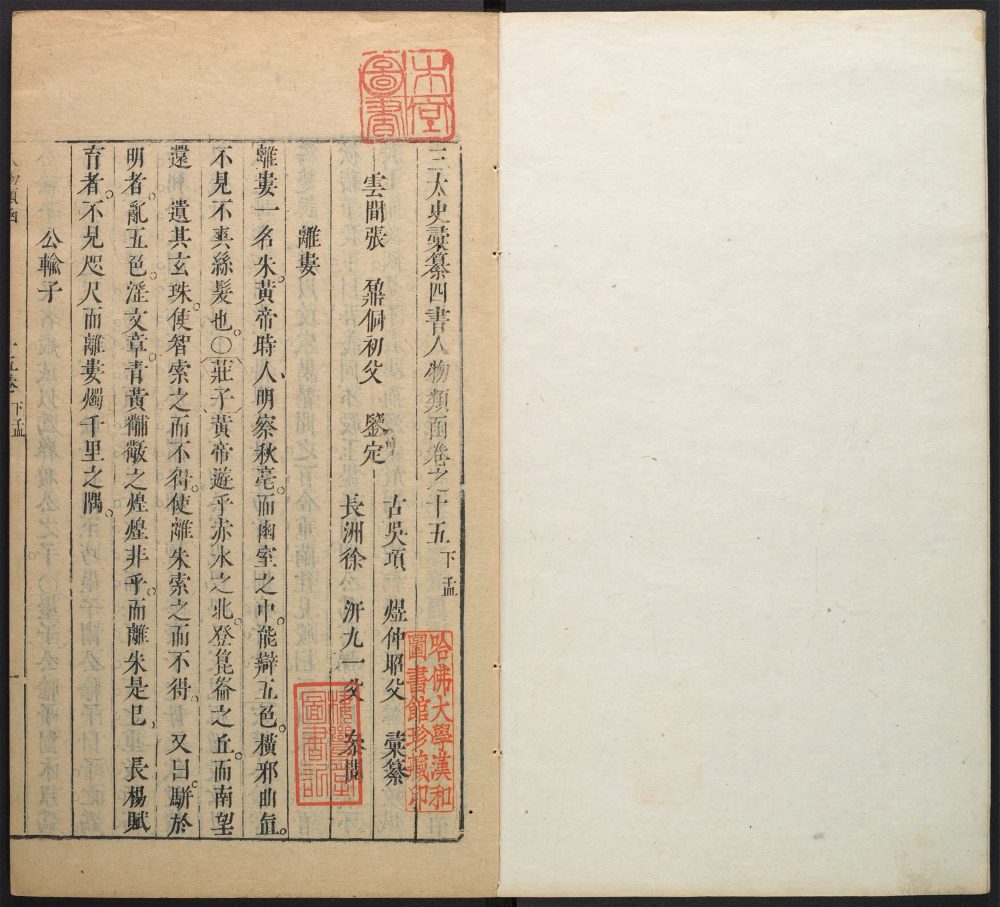 三太史彚纂四書人物類函卷之十五 下孟
古吳項 煜仲昭父 彚纂
雲間張 鼐侗初父 鑒定
長洲徐 汧九一父 叅閱
離婁
離婁一名朱。黃帝時人、明察秋毫。而幽室之中。能辯五色。橫邪曲直。
不見不爽絲髮也。○莊子黃帝遊乎赤水之北。登崑崙之丘。而南望
還 遺其玄珠。使智索之而不得。使離朱索之而不得。又曰。駢於
明者。亂五色。淫文章。青黃黼黻之煌煌非乎。而離朱是已。長楊賦
育者。不見咫尺而離婁燭千里之隅。
公輸子
人物類函
十五卷 下孟
一
木堂圖書
哈佛大學漢和圖書館珍藏印
圖書記